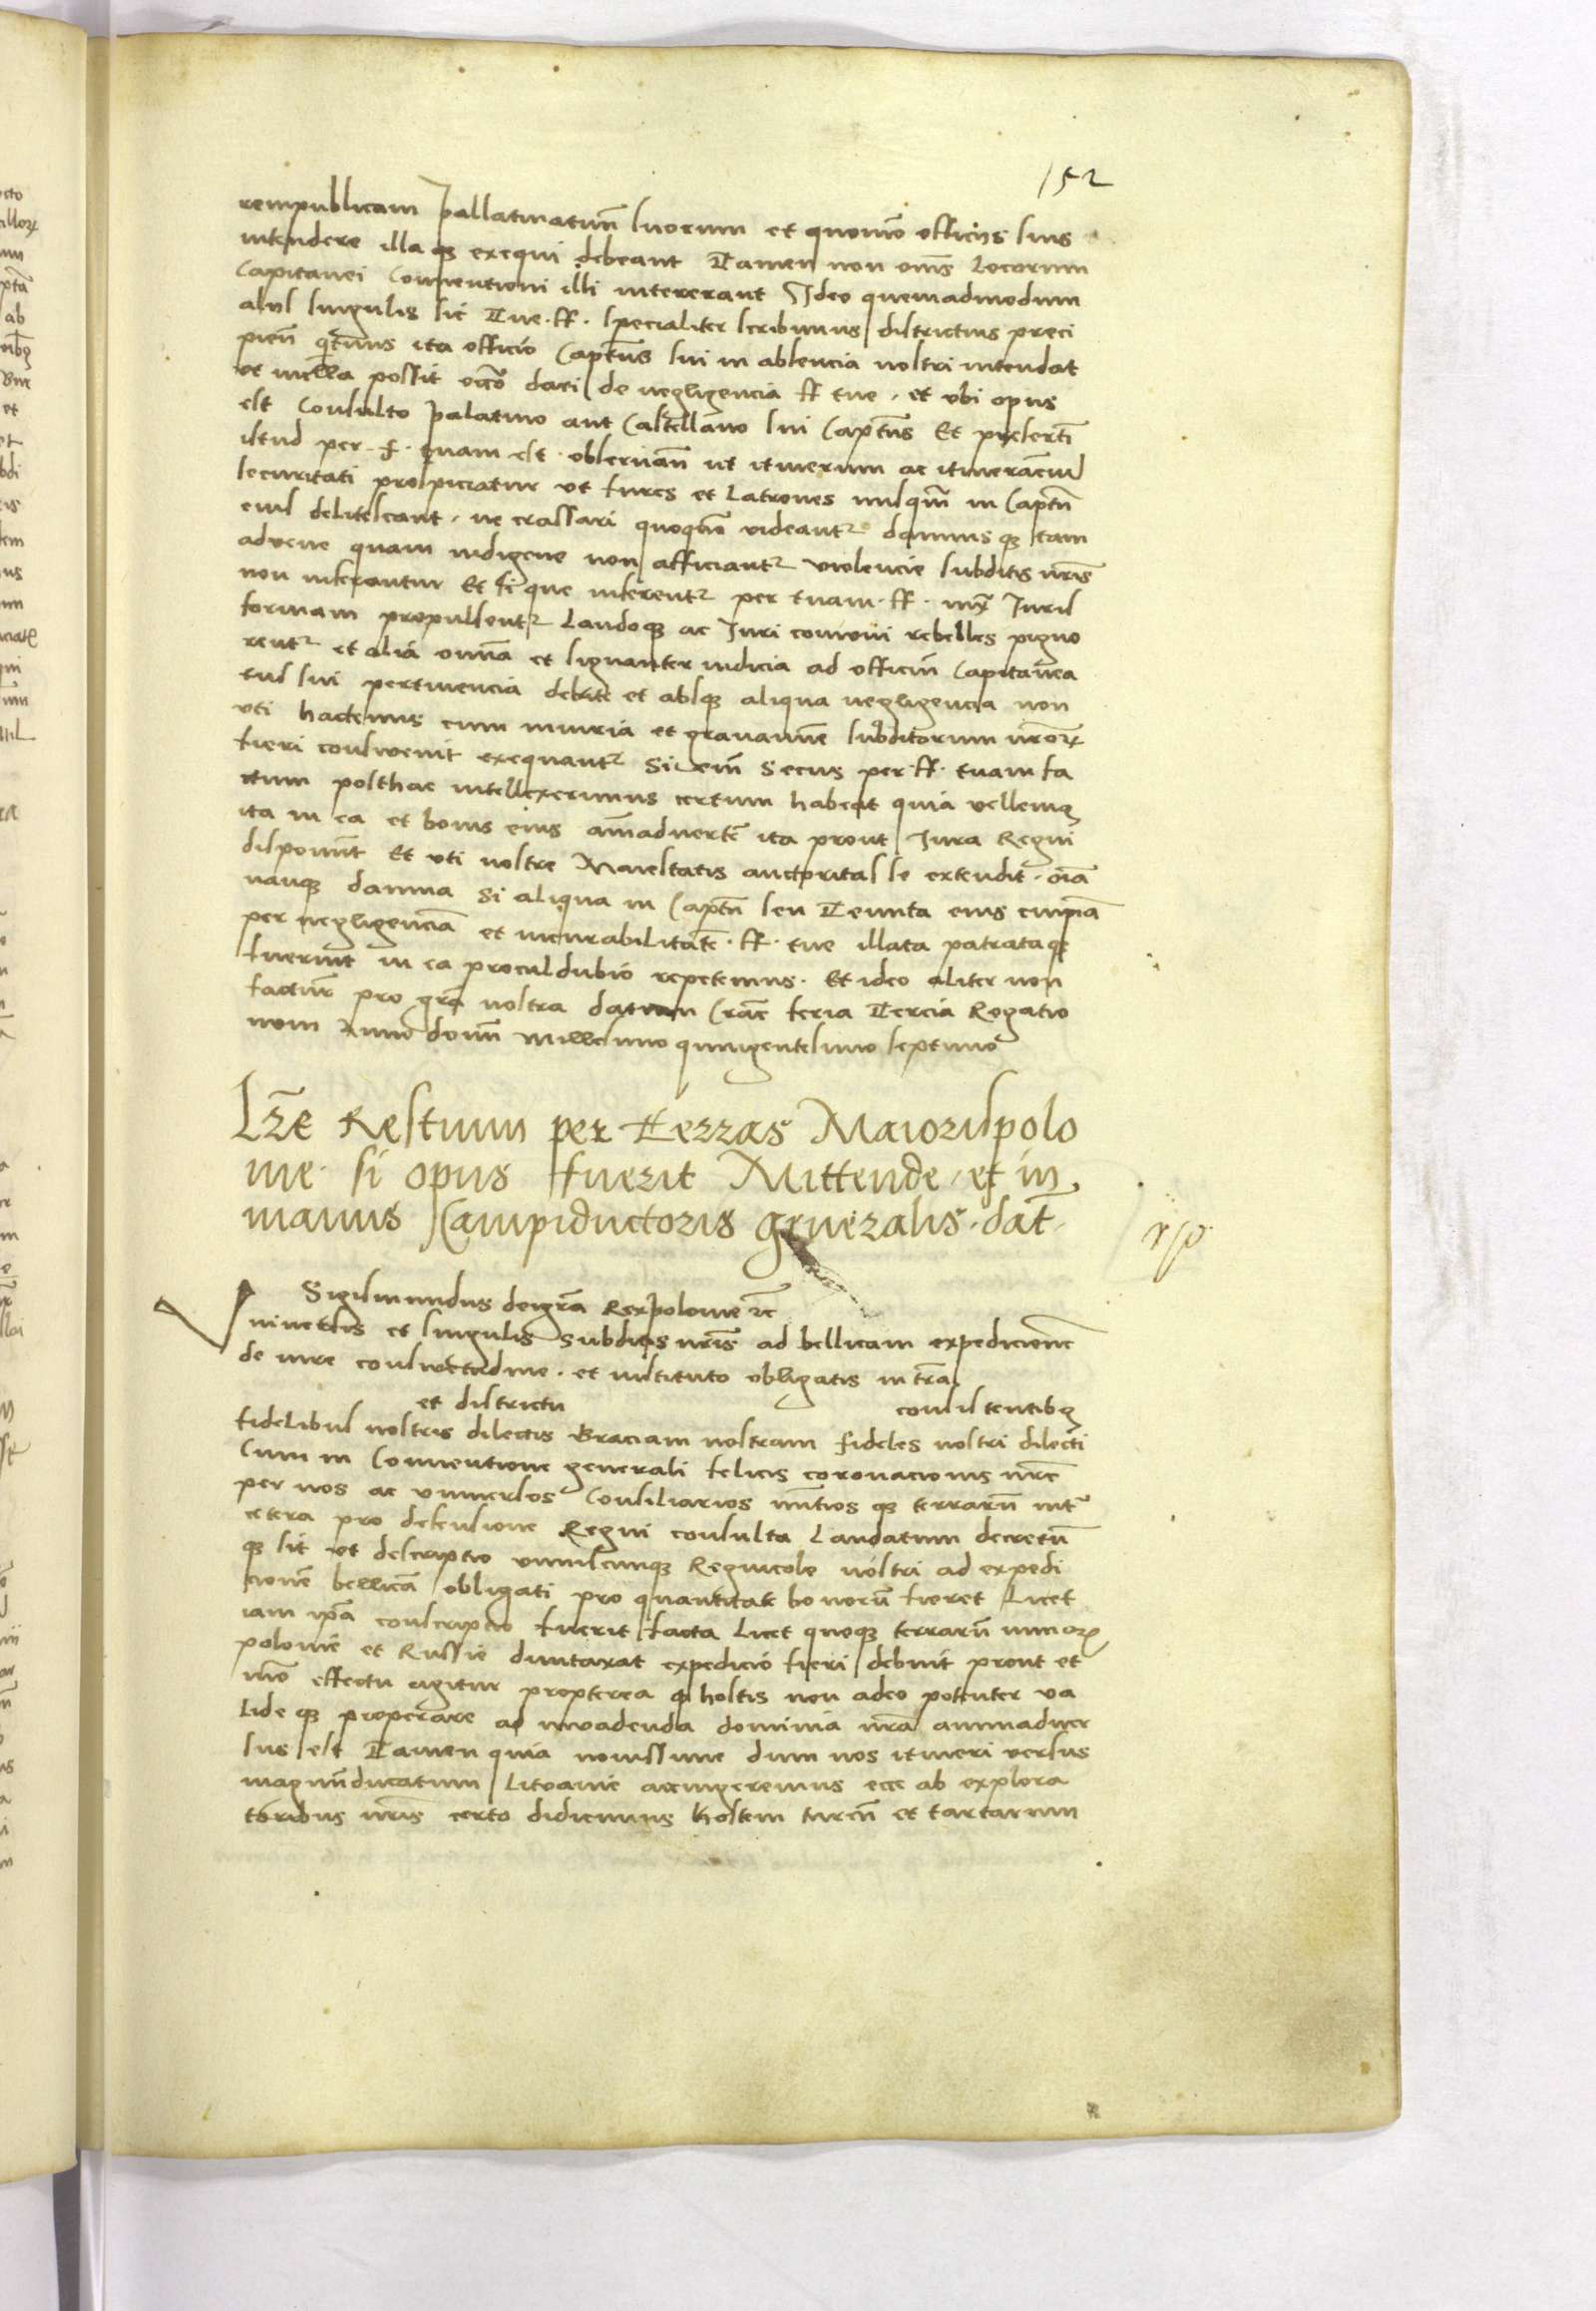 152
rempublicam pallatinatuū suorum et quomō officijs suis
intendere illaqꝫ exequi debeant Tamen non om̄s locorum
Capitanei Conventioni illi intererant Ideo quemadmodum
alijs singulis sic Tue. ff. specialiter scribimus districtius preci
pien̄ qͣtenus ita officio Capten̄s sui in absencia nostri intendat
ut nulla possit occō dari de negligencia ff tue. et ubi opus
est Consulto palatino aut Castellano sui Capten̄s Et presertī
istud per. f. tuam est observan̄ ut itinerum ac itineranciū
securitati prospiciatur ut fures et Latrones nusqͣm in Capten̄
eius delitescant. ne crassari quoqͣm videantʳ damnisqꝫ tam
advene quam indigene non afficiantʳ violencie subditis nr̄is
non inferantur Et si que inferentʳ per tuam. ff. mox Juris
formam propulsentʳ Laudoqꝫ ac Juri comuni rebelles pigno
rentʳ et alia omnia et signanter iudicia ad officiū Capitanea
tus sui pertinencia debite et absqꝫ aliqua negligencia non
uti hactenus cum iniuria et gravamine subditorum nr̄oꝝ
fieri consuevit exequantʳ Si vem̄ Secus per. ff. tuam fa
ctum posthac intellexerimus certum habeat quia vellemꝫ
ita in ea et bonis eius aīmadvertē ita prout Jura Regni
disponūt Et uti nostre Maiestatis auctoritas se extendit. oīa
nanqꝫ damna Si aliqua in Captn̄ seu Tenuta eius cuipiā
per negligenciā et incurabilitatē. ff. tue illata patrataqꝫ
fuerint in ea proculdubio repetemus. Et ideo aliter non
factur̄ pro grā nostra datum Crac̄ feria Tercia Rogatio
num Anno domī Millesimo quingentesimo septimo
Lr̄e Restium per Terras Maiorispolo
nie si opus fuerit Mittende et in
manus Campiductoris generalis. dat̄.
Sigismundus deigrā Rexpolonie ꝛc̄
Universis et singulis Subditis nr̄is ad bellicam expedicionē
de iure consuetudine. et instituto obligatis in trā.
et districtu consistentibꝫ
fidelibus nostris dilectis Graciam nostram fideles nostri dilecti
Cum in Conventione generali felicis coronacionis nr̄e
per nos ac universos Consiliarios nūtiosqꝫ terrarū intʳ
cetera pro defensione Regni consulta Laudatum decretū
qꝫ sit ut descriptio uniuscuiusqꝫ Regnicole nostri ad expedi
cionē bellicā obligati pro quantitate bonorū fieret Licet
iam ip̄a conscriptio fuerit facta Licet quoqꝫ terrarū minoꝝ
polonie et Russie duntaxat expedicio fieri debuit prout et
nūc effectu agitur propterea qꝫ hostis non adeo potenter va
lideqꝫ properare ad invadenda dominia nr̄a animadver
sus est Tamen quia novissime dum nos itineri versus
magnūducatum Litvanie accingeremus ecce ab explora
toribus nr̄is certo didicimus hostem turcū et tartarum